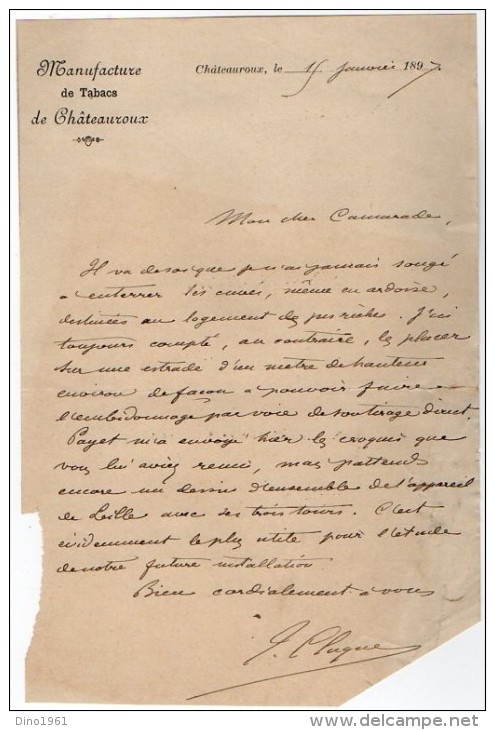 Manufacture
de Tabacs
de Châteauroux
Châteauroux, le 15 Janvier 1897.
Mon cher Camarade,
Il va de soi que je n'ai jamais songé
à enterrer les cuves, même en ardoise,
destinées au logement des jus riches. J'ai
toujours compté, au contraire, les placer
sur une estrade d'un mètre de hauteur
environ de façon à pouvoir faire
l'embidonnage par voie de soutirage direct.
Payet m'a envoyé hier les croquis que
vous lui aviez remis, mais j'attends
encore un dessin d'ensemble de l'appareil
de Lille avec ses trois tours. C'est
évidemment le plus utile pour l'étude
de notre future installation.
Bien cordialement à vous
Dino1961
delcampe.net